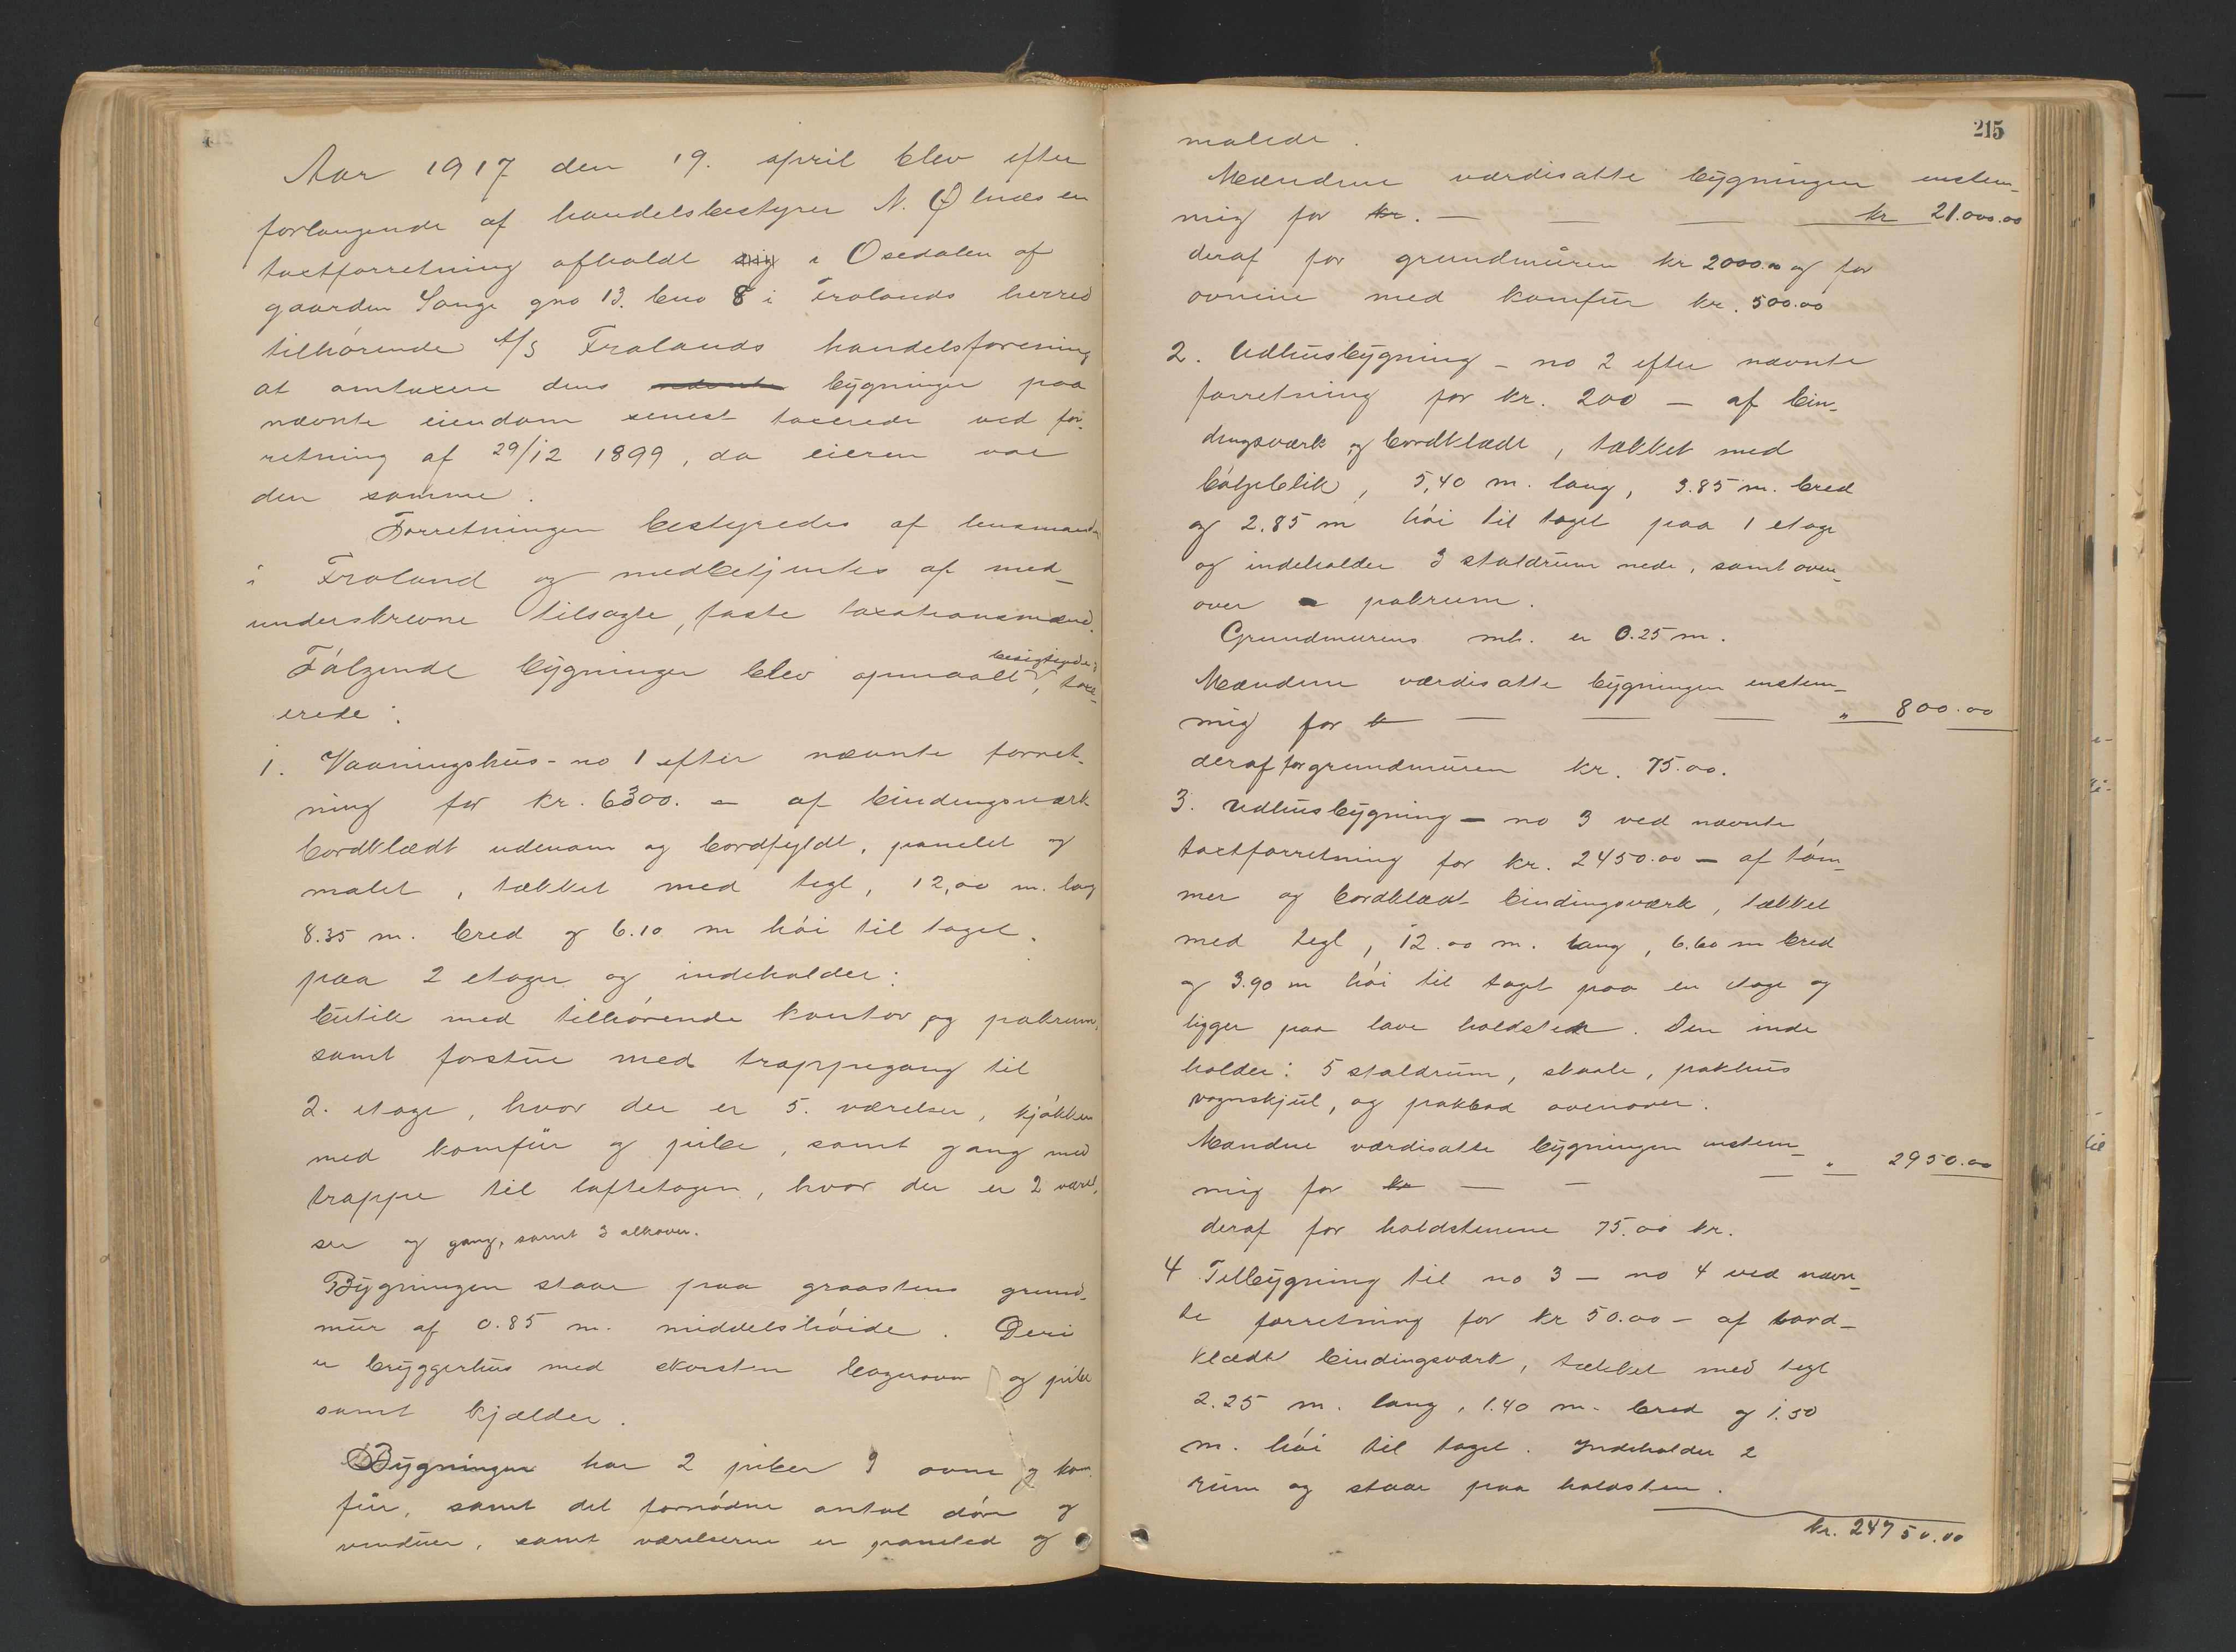 Aar 1917 den 19. april blev efter
forlangende af handelsbestyrer N. Ølnæs en
taxtforretning afholdt i Osedalen af
gaarden Songe gno 13. bno 8 i Frolands herred
tilhørende A/S Frolands handelsforening
at omtaxere dens bygninger paa
nævnte eiendom senest taxerede ved for-
retning af 29/12 1899, da eieren var
den samme.
Forretningen bestyredes af lensmanden
i Froland og medbetjentes af med-
underskrevne tilsagte, faste taxationsmænd.
Følgende bygninger blev opmaalt, besigtigede, tax-
erede:
1. Vaaningshus - no 1 efter nævnte forret-
ning for kr. 6300. - af bindingsværk
bordklædt udenom og bordfyldt, panelet og
malet, tækket med tegl, 12,00 m. lang
8.35 m. bred og 6.10 m høi til taget.
paa 2 etager og indeholder:
butik med tilhørende kontor og pakrum,
samt forstue med trappegang til
2. etage, hvor der er 5. værelser, kjøkken
med komfür og pibe, samt gang med
trappe til loftetagen, hvor der er 2 værel-
ser og gang, samt 3 alkover.
Bygningen staar paa graastens grund-
mur af 0.85 m. middelshøide. Deri
er bryggerhus med skorsten bagerovn og pibe
samt kjælder.
Bygningen har 2 piber 9 ovne og kom-
für, samt det fornødne antal døre og
vinduer, samt værelserne er paneled og
215
malede.
Mændene værdisatte bygningen enstem-
mig for kr. — — — kr 21.000.00
deraf for grundmüren kr 2000.00 og for
ovnene med komfür kr. 500.00
2. Udhusbygning - no 2 efter nævnte
forretning for kr. 200 - af bin-
dingsværk og bordklædt, tækket med
bølgeblik, 5,40 m. lang, 3.85 m. bred
og 2.85 m høi til taget paa 1 etage
og indeholder 3 staldrum nede, samt oven-
over pakrum.
Grundmurens mh. er 0.25 m.
Mændene værdisatte bygningen enstem-
mig for k — — — " 800.00
deraf for grundmuren kr. 75.00.
3. Udhusbygning - no 3 ved nævnte
taxtforretning for kr. 2450.00 - af tøm-
mer og bordklædt bindingsværk, tækket
med tegl, 12.00 m. lang, 6.60 m bred
og 3.90 m høi til taget paa en etage og
ligger paa lave holdsten. Den inde
holder: 5 staldrum, skaale, pakhus
vognskjul, og pakbod ovenover.
Mændene værdisatte bygningen enstem-
mig for kr — — — " 2950.00
deraf for holdstenene 75.00 kr.
4 Tilbygning til no 3 - no 4 ved nævn-
te forretning for kr 50.00 - af bord-
klædt bindingsværk, tækket med tegl
2.25 m. lang, 1.40 m. bred og 1.50
m. høi til taget. Indeholder 2
rum og staar paa holdsten.
kr. 24750.00